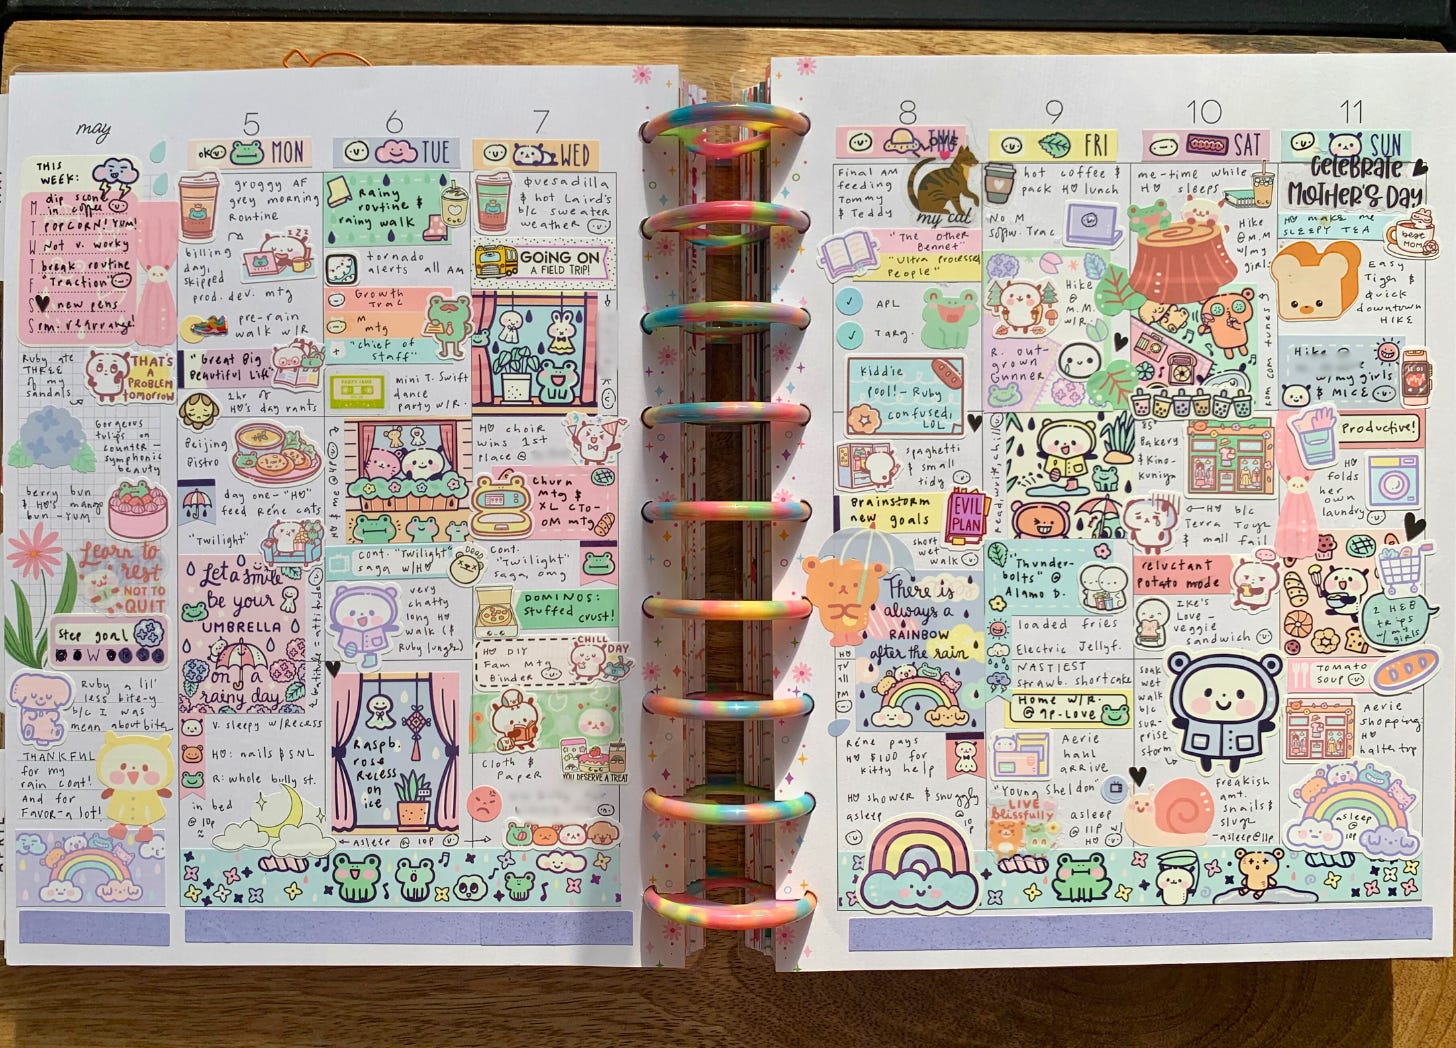 may
THIS
WEEK:
dip scone
M in coffee
T POPCORN! YUM!
W Not v. worky
T break routine
F "Traction"
S new pens
S rearrange!
Ruby ate
THREE
of my
sandals
THAT'S
A
PROBLEM
tomorrow
Gorgeous
tulips on
counter -
symphonic
beauty
berry bun
& H's mango
bun - YUM
Learn to
rest
NOT TO
QUIT
Step goal
W
Ruby a lil'
less bite-y
b/c I was
mean about bite
THANKFUL
for my
rain coat!
And for
Favor-a lot!
5
ok
MON
groggy AF
grey morning
Routine
billing
day,
skipped
prod. dev. mtg
zzz
pre-rain
walk w/R
"Great Big
Beautiful Life"
1 hr of
H's day rants
Beijing
Bistro
day one - "H"
feed Réne cats
"Twilight"
Let a smile
be your
UMBRELLA
on a
rainy day
beatitude = attitude
v. sleepy w/Recess
H: nails & SNL
R: whole bully st.
in bed
@ 10p
6
TUE
Rainy
routine &
rainy walk
tornado
alerts all AM
Growth
Trac
M
mtg
"chief of
staff"
PARTY JAMS
mini T. Swift
dance
party w/R.
cont. "Twilight"
saga w/H
DEAD
very
chatty
long H
walk (&
Ruby lunge)
Raspb.
rose
Recess
on
ice
← asleep @ 10p
7
WED
Quesadilla
& hot Laird's
b/c sweater
weather
GOING ON
A FIELD TRIP!
H choir
wins 1st
place @
churn
mtg &
XL CTO-
OM mtg
Cont.
"Twilight"
Saga, omg
DOMINOS:
stuffed
crust!
H DIY
Fam Mtg
Binder
CHILL
DAY
Cloth &
Paper
YOU DESERVE A TREAT
8
THU
LOVE
my cat
Final AM
feeding
Tommy
& Teddy
"The other
Bennet"
"Ultra Processed
People"
APL
Targ.
Kiddie
pool! - Ruby
confused,
LOL
spaghetti
& small
tidy
Brainstorm
new goals
EVIL
PLAN
short
wet
walk
There is
always a
RAINBOW
after the rain
H
TV
PM
Réne pays
H $100 for
kitty help
H shower & snuggly
asleep
@
10
p
9
FRI
hot coffee &
pack H lunch
No M
Softw. Trac
Hike
@
M.M.
w/R.
R. out-
grown
Gunner
"Thunder-
bolts" @
Alamo D.
loaded fries
Electric Jellyf.
NASTIEST
strawb. shortcake
Home w/R.
@ 9p - Love
Aerie
haul
arrive
"Young Sheldon"
LIVE
blissfully
asleep
@ 11p w/
H
10
SAT
me-time while
H sleeps
Hike
@ M.M
w/my
girls
rom com tunes
85°
Bakery
& Kino-
Kuniya
←H b/c
Terra Toys
& mall fail
reluctant
potato mode
Ike's
Love -
veggie
sandwich
soak
wet
walk
b/c
sur-
prise
storm
Freakish
amt.
snails &
slugs
-asleep@11p
11
SUN
Celebrate
MOTHER'S DAY
H make me
SLEEPY TEA
best
MOM
Easy
Tiger &
quick
downtown
HIKE
Hike @
w/my girls
& MICE
Productive!
H
folds
her
own
laundry
2 HEB
trips
w/ my
girls
TOMATO
SOUP
Aerie
shopping:
H
halter top
asleep
@
10p